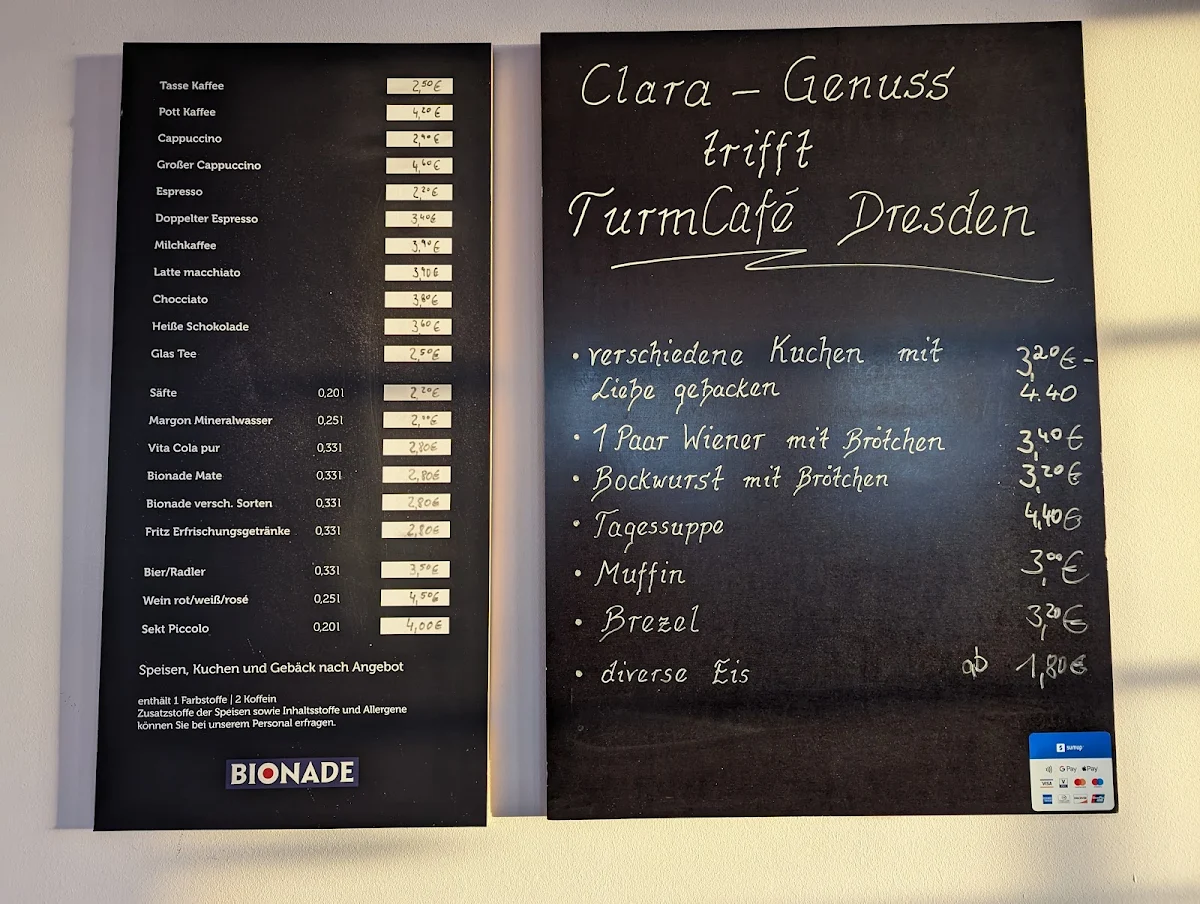 Tasse Kaffee 2,50€
Pott Kaffee 4,20€
Cappuccino 2,90€
Großer Cappuccino 4,60€
Espresso 2,20€
Doppelter Espresso 3,40€
Milchkaffee 3,90€
Latte macchiato 3,90€
Chocciato 3,80€
Heiße Schokolade 3,60€
Glas Tee 2,50€
Säfte 0,20l 2,20€
Margon Mineralwasser 0,25l
Vita Cola pur 0,33l 2,80€
Bionade Mate 0,33l 2,80€
Bionade versch. Sorten 0,33l 2,80€
Fritz Erfrischungsgetränke 0,33l 2,80€
Bier/Radler 0,33l 3,50€
Wein rot/weiß/rosé 0,25l 4,50€
Sekt Piccolo 0,20l 4,00€
Speisen, Kuchen und Gebäck nach Angebot
enthält 1 Farbstoffe | 2 Koffein
Zusatzstoffe der Speisen sowie Inhaltsstoffe und Allergene
können Sie bei unserem Personal erfragen.
BIONADE
Clara – Genuss
trifft
TurmCafé Dresden
• verschiedene Kuchen mit 3,20€ –
Liebe gebacken 4.40
• 1 Paar Wiener mit Brötchen 3,40€
• Bockwurst mit Brötchen 3,20€
• Tagessuppe 4,40€
• Muffin 3,00€
• Brezel 3,20€
• diverse Eis ab 1,80€
sumup
G Pay Pay
VISA